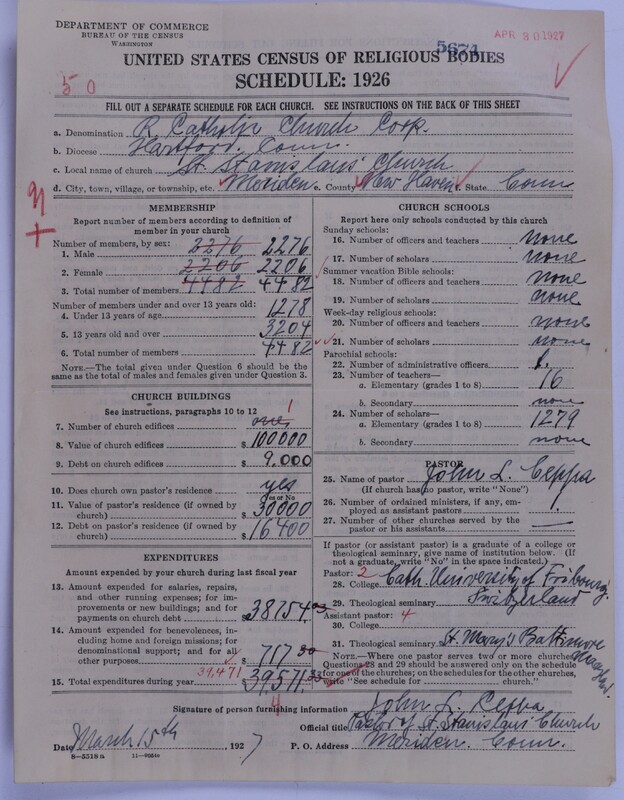 DEPARTMENT OF COMMERCE
BUREAU OF THE CENSUS
WASHINGTON
APR 30 1927
5674
UNITED STATES CENSUS OF RELIGIOUS BODIES
50
SCHEDULE: 1926
FILL OUT A SEPARATE SCHEDULE FOR EACH CHURCH. SEE INSTRUCTIONS ON THE BACK OF THIS SHEET
a. Denomination R. Catholic Church Corp.
b. Diocese Hartford, Conn.
c. Local name of church St. Stanislaus' Church
d. City, town, village, or township, etc. Meriden e. County New Haven f. State Conn
MEMBERSHIP
Report number of members according to definition of
member in your church
Number of members, by sex:
1. Male 2276 2276
2. Female 2206 2206
3. Total number of members 4482 4482
Number of members under and over 13 years old:
4. Under 13 years of age 1278
5. 13 years old and over 3204
6. Total number of members 4482
NOTE.—The total given under Question 6 should be
same as the total of males and females given under Question 3.
CHURCH BUILDINGS
See instructions, paragraphs 10 to 12
7. Number of church edifices one 1
8. Value of church edifices $ 100000
9. Debt on church edifices $ 9.000
10. Does church own pastor's residence yes
Yes or No
11. Value of pastor's residence (if owned by
church) $ 30000
12. Debt on pastor's residence (if owned by
church) $ 16400
EXPENDITURES
Amount expended by your church during last fiscal year
13. Amount expended for salaries, repairs,
and other running expenses; for im-
provements or new buildings; and for
payments on church debt $ 38754.03
14. Amount expended for benevolences, in-
cluding home and foreign missions; for
denominational support; and for all
other purposes $ 717.30
39,471
15. Total expenditures during year $ 39571.33
CHURCH SCHOOLS
Report here only schools conducted by this church
Sunday schools:
16. Number of officers and teachers none
17. Number of scholars none
Summer vacation Bible schools:
18. Number of officers and teachers none
19. Number of scholars none
Week-day religious schools:
20. Number of officers and teachers none
21. Number of scholars none
Parochial schools:
22. Number of administrative officers 1.
23. Number of teachers—
a. Elementary (grades 1 to 8) 16
b. Secondary none
24. Number of scholars—
a. Elementary (grades 1 to 8) 1279
b. Secondary none
PASTOR
25. Name of pastor John L. Ceppa
(If church has no pastor, write "None")
26. Number of ordained ministers, if any, em-
ployed as assistant pastors 1.
27. Number of other churches served by the
pastor or his assistants —
If pastor (or assistant pastor) is a graduate of a college or
theological seminary, give name of institution below. (If
not a graduate, write "No" in the space indicated.)
Pastor: 2
28. College Cath. University of Fribourg.
29. Theological seminary Switzerland
Assistant pastor: 4
30. College
31. Theological seminary St. Mary's Baltimore
NOTE.—Where one pastor serves two or more churches,
Questions 28 and 29 should be answered only on the schedule
for one of the churches; on the schedules for the other churches,
write "See schedule for church."
4
Signature of person furnishing information John L. Ceppa
Official title Pastor of St. Stanislaus' Church
Date March 15th, 1927 P. O. Address Meriden, Conn.
8—5518a